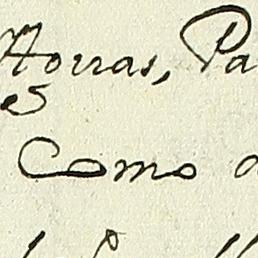 Horras, Pa
es
Como a